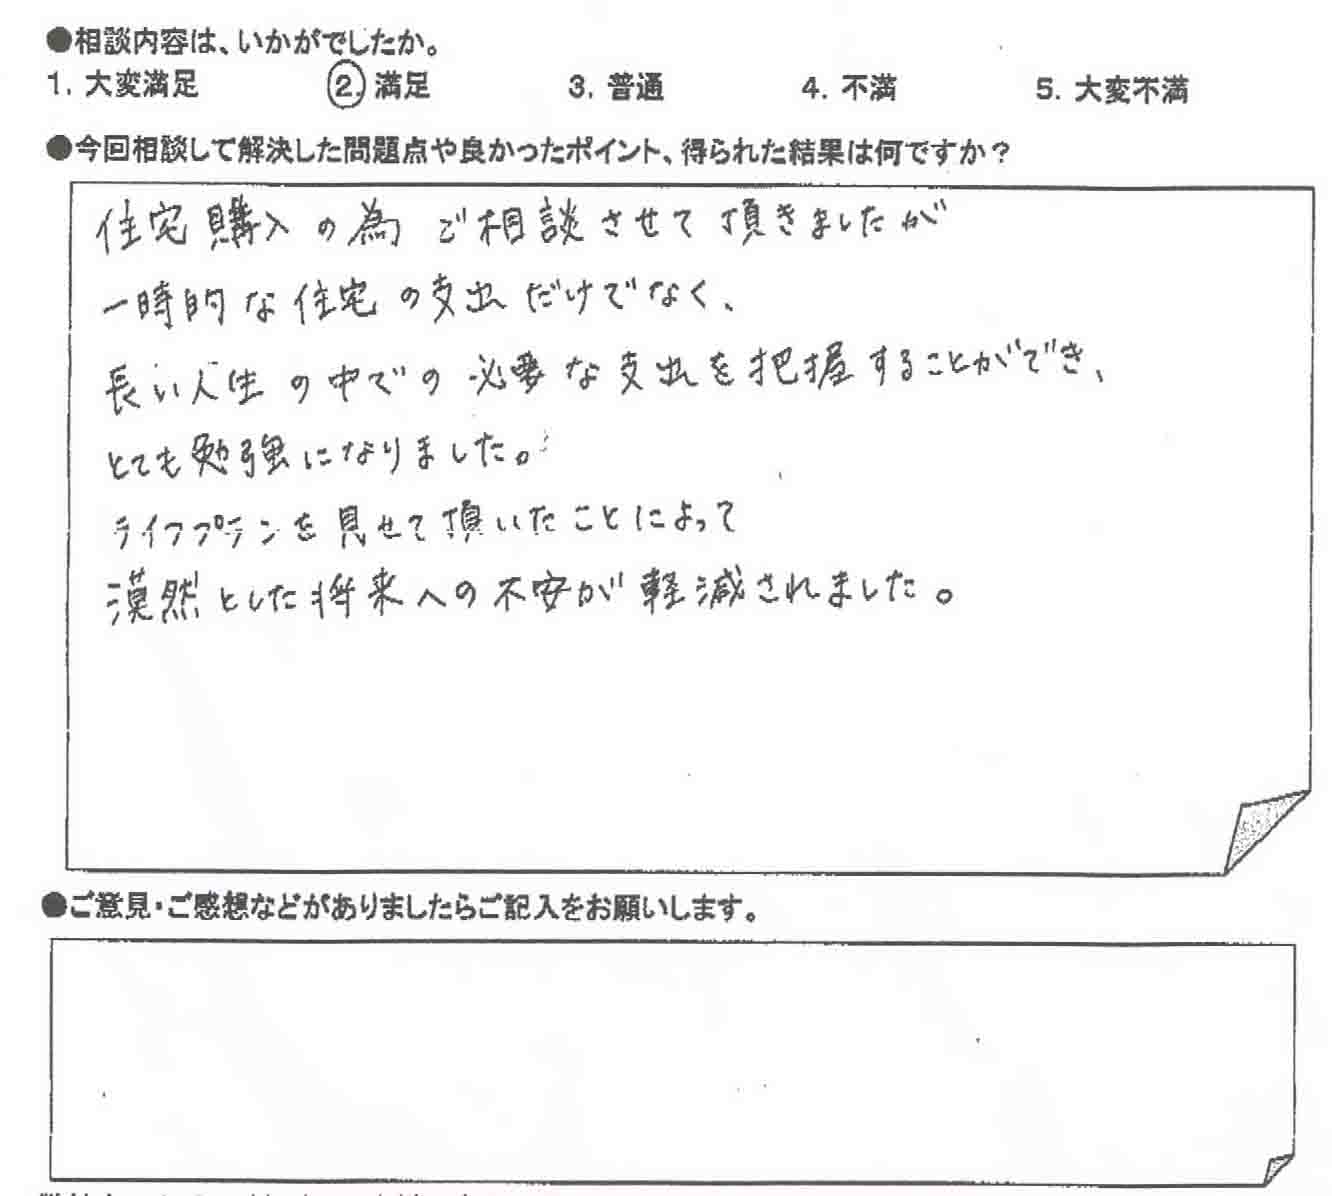 ●相談内容は、いかがでしたか。
1. 大変満足 2. 満足 3. 普通 4. 不満 5. 大変不満
●今回相談して解決した問題点や良かったポイント、得られた結果は何ですか？
住宅購入の為 ご相談させて頂きましたが
一時的な住宅の支出だけでなく、
長い人生の中での必要な支出を把握することができ、
とても勉強になりました。
ライフプランを見せて頂いたことによって
漠然とした将来への不安が軽減されました。
●ご意見・ご感想などがありましたらご記入をお願いします。